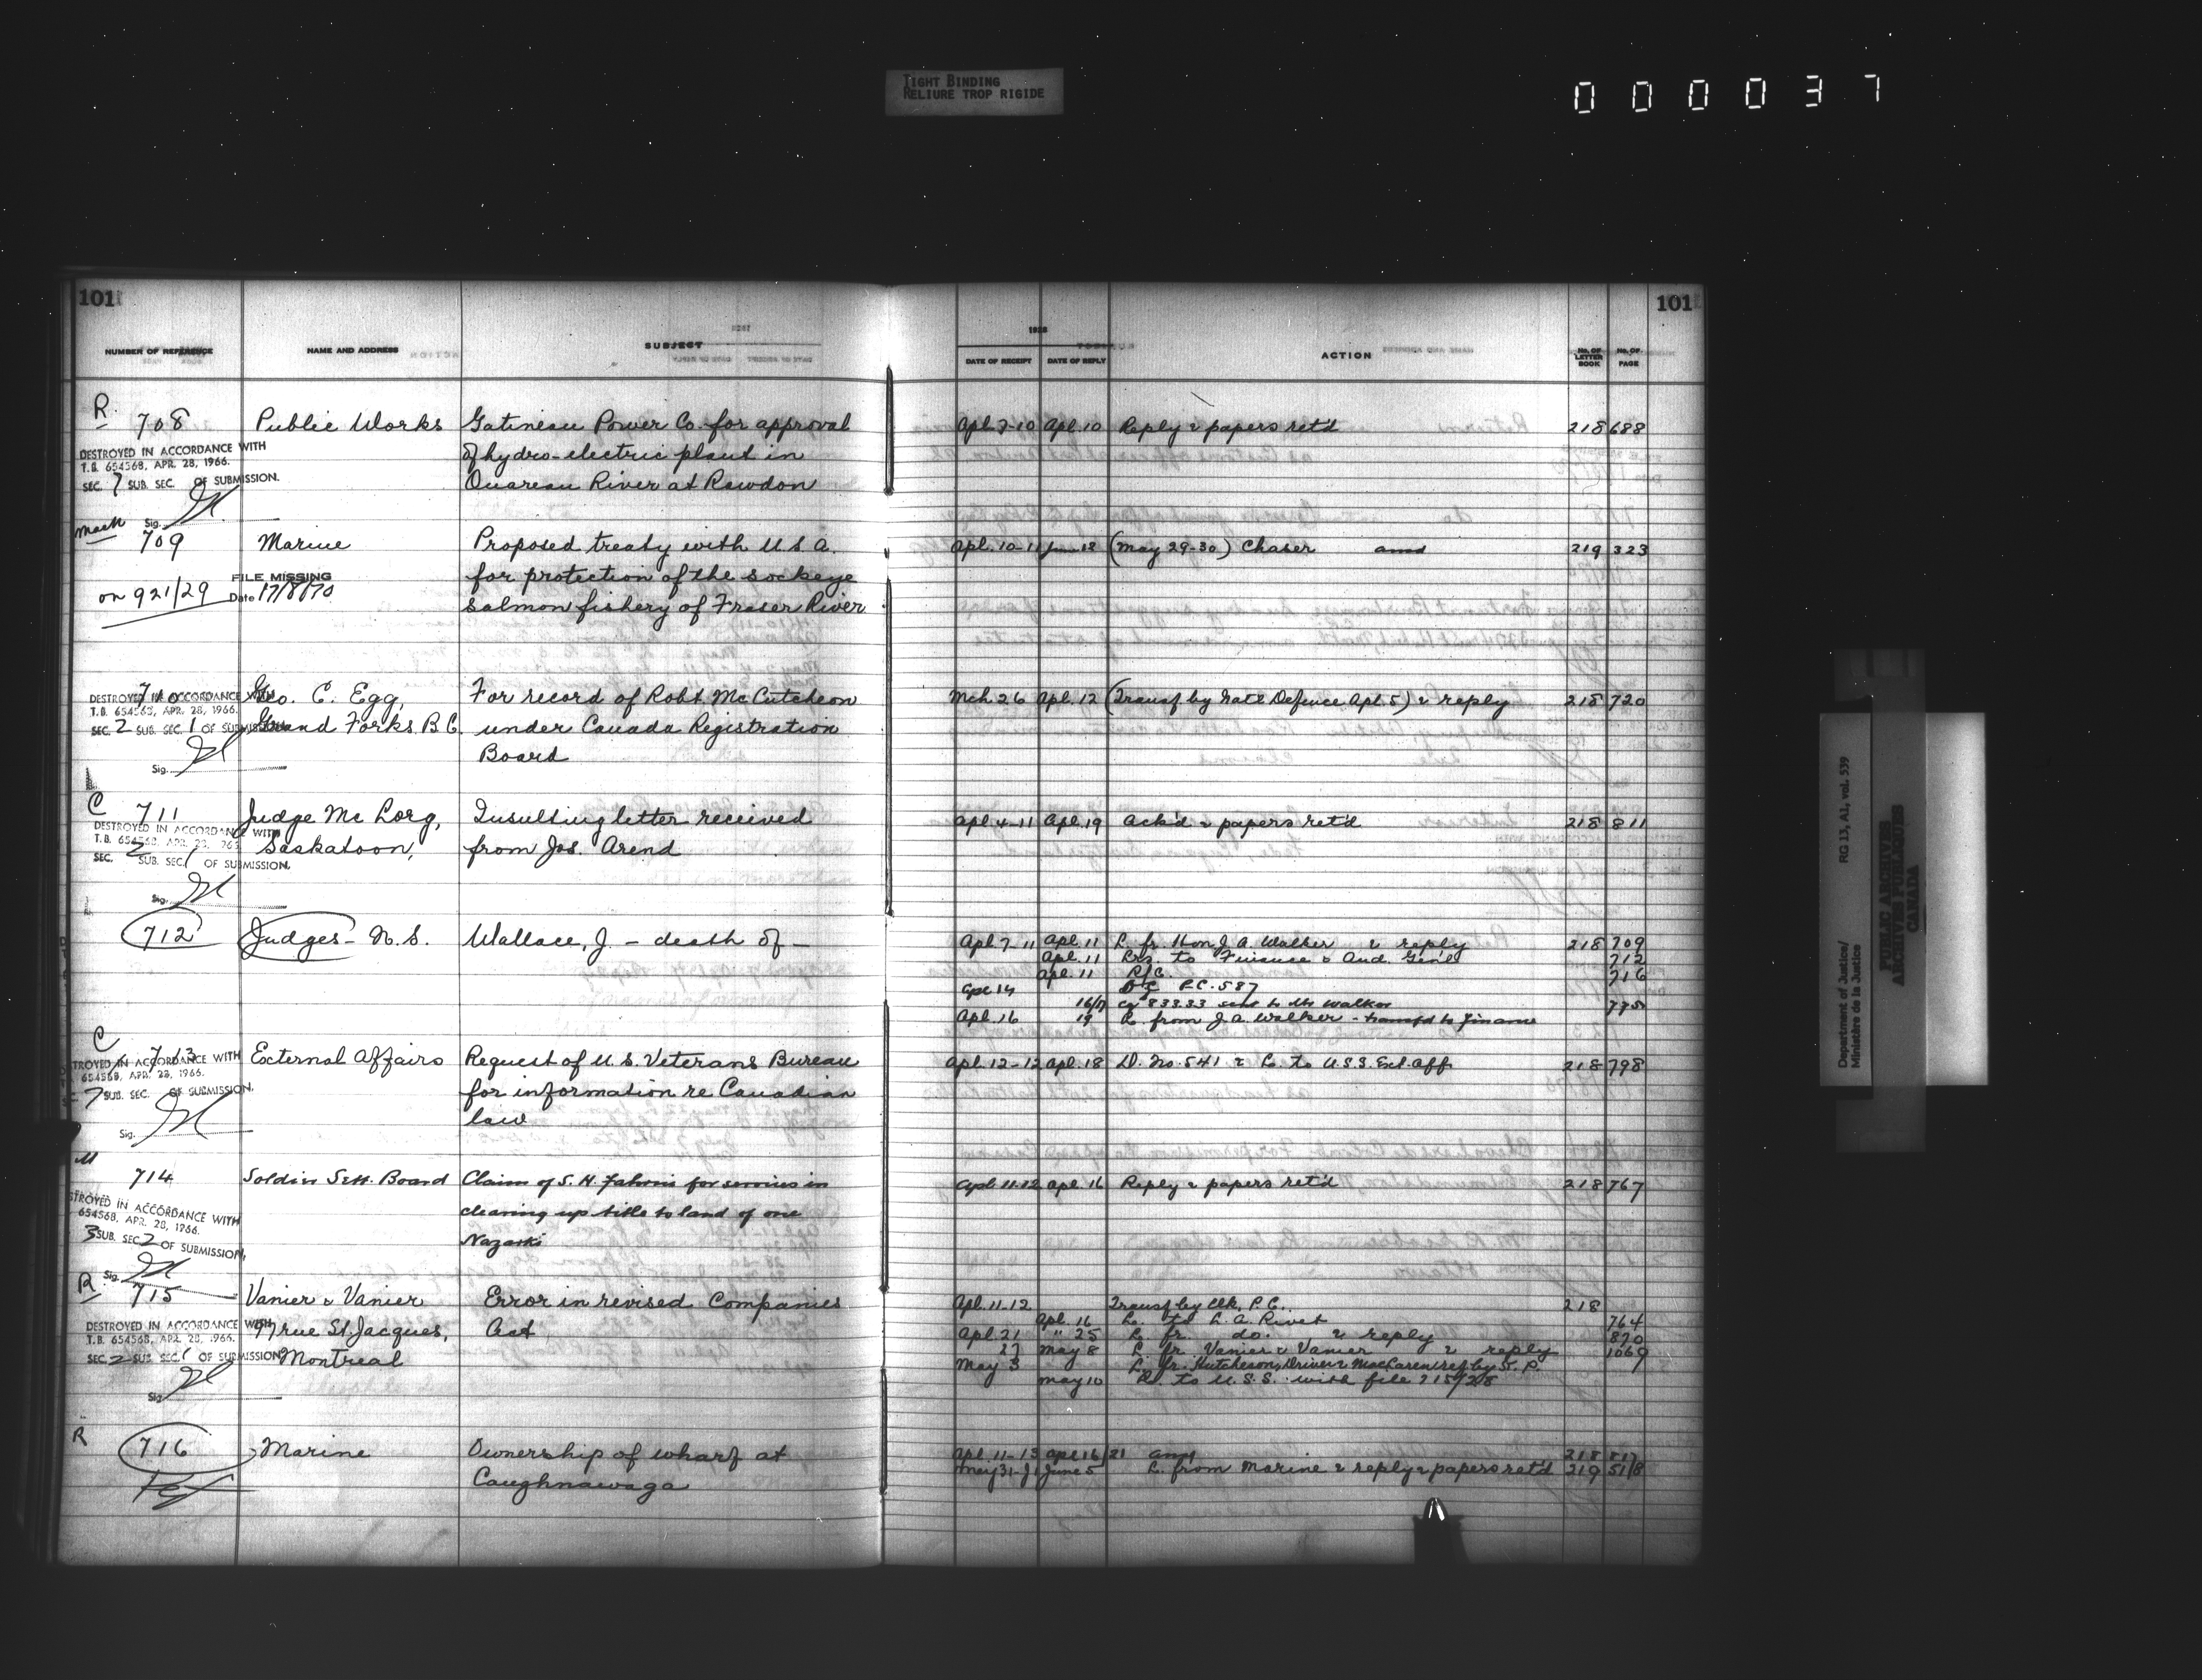 TIGHT BINDING
RELIURE TROP RIGIDE
000037
101
101
1928
NUMBER OF REFERENCE NAME AND ADDRESS SUBJECT DATE OF RECEIPT DATE OF REPLY ACTION No. OF LETTER BOOK No. OF PAGE
R.
708 Public Works Gatineau Power Co. for approval Apl. 7-10 Apl. 10 Reply & papers ret'd 218 688
DESTROYED IN ACCORDANCE WITH of hydro-electric plant in
T.B. 654568, APR. 28, 1966.
SEC. 7 SUB. SEC. OF SUBMISSION. Ouareau River at Rawdon
Sig.
709 Marine Proposed treaty with U.S.A. Apl. 10-11 June 12 (May 29-30) Chaser and 219 323
FILE MISSING for protection of the sockeye
on 921/29 Date 17/8/70 salmon fishery of Fraser River
710 Geo. C. Egg, For record of Robt. McCutcheon Mch. 26 Apl. 12 (Transf. by Natl Defence Apl. 5) & reply 218 720
DESTROYED IN ACCORDANCE WITH
T.B. 654568, APR. 28, 1966.
SEC. 2 SUB. SEC. 1 OF SUBMISSION Grand Forks B.C. under Canada Registration
Board
Sig.
C 711 Judge McLorg, Insulting letter received Apl. 4-11 Apl. 19 Ack'd & papers ret'd 218 811
DESTROYED IN ACCORDANCE WITH
T.B. 654568, APR. 28, 1966 Saskatoon, from Jos. Arend
SEC. 2 SUB. SEC. 1 OF SUBMISSION.
Sig.
712 Judges - N.S. Wallace, J. - death of - Apl. 7-11 Apl. 11 L. fr. Hon. J. A. Walker & reply 218 709
Apl. 11 Lrs. to Finance & Aud. Genl 712
Apl. 11 R/C. 716
Apl 14 P.C. 587
16/17 833.33 sent to Walker 775
Apl. 16 19 L. from J. A. Walker - transf'd to Finance
C
713 External Affairs Request of U.S. Veterans Bureau Apl. 12-12 Apl. 18 D. No. 541 & L. to U.S.S. Ext. Aff. 218 798
STROYED IN ACCORDANCE WITH
654568, APR. 28, 1966. for information re Canadian
7 SUB. SEC. OF SUBMISSION. law
Sig.
M
714 Soldier Sett. Board Claim of S. H. for services in Apl. 11-12 Apl. 16 Reply & papers ret'd 218 767
STROYED IN ACCORDANCE WITH clearing up title to land of one
654568, APR. 28, 1966.
3 SUB. SEC. 2 OF SUBMISSION,
Sig.
R 715 Vanier & Vanier Error in revised Companies Apl. 11-12 Transf. by Clk. P.C. 218
DESTROYED IN ACCORDANCE WITH 97 rue St. Jacques, Act Apl. 16 L. to L. A. Rivet 764
T.B. 654568, APR. 28, 1966. Apl. 21 " 25 L. fr. do. & reply 870
SEC. 2 SUB. SEC. 1 OF SUBMISSION Montreal 27 May 8 L. fr. Vanier & Vanier & reply 1069
May 3 L. fr. Hutcheson, Driver & MacLaren ref. by S.P.
Sig. May 10 L. to U.S.S. with file 715/28
R
716 Marine Ownership of wharf at Apl. 11-13 Apl 16/21 and 218 817
Caughnawaga May 31-J1 June 5 L. from Marine & reply & papers ret'd 219 518
Department of Justice/
Ministère de la Justice
RG 13, A1, vol. 539
PUBLIC ARCHIVES
ARCHIVES PUBLIQUES
CANADA